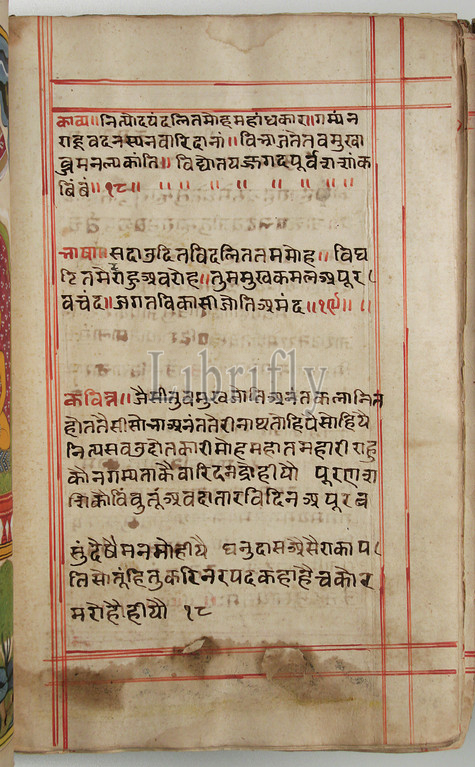 काव्य॥नित्योदयंदलितमोहमहांधकारं॥गम्यंन
राहुवदनस्यनवारिदानां॥विभ्राजतेतवमुखा
ब्जमनल्पकांति॥विद्योतयज्जगदपूर्वशशांक
बिंबं॥१८॥
भाषा॥सदाउदितविदलिततममोह॥विघ
टितमेघराहुअवरोह॥तुममुखकमलअपूर
वचंद॥जगतविकासीजोतिअमंद॥१८॥
Librifly
कवित्त॥जैसीतुवमुखजोतिअनंतकलानि
होततैसीसोभाअनंततेरीनाथतोहिपैसोहिये
नित्यसवउदोतकारीमोहमहातमहारीराहु
कौनगम्यताकैवारिदनद्रोहीयो पूरणश
शिकोविंबतूंअवदातारविदिनअपूरब
मुंदेषैमनमोहीयै धनुदासअसैराकाप
तिसोतूंहितुकरिनरपदकहाहैचकोर
मरोहैहीयौ १८